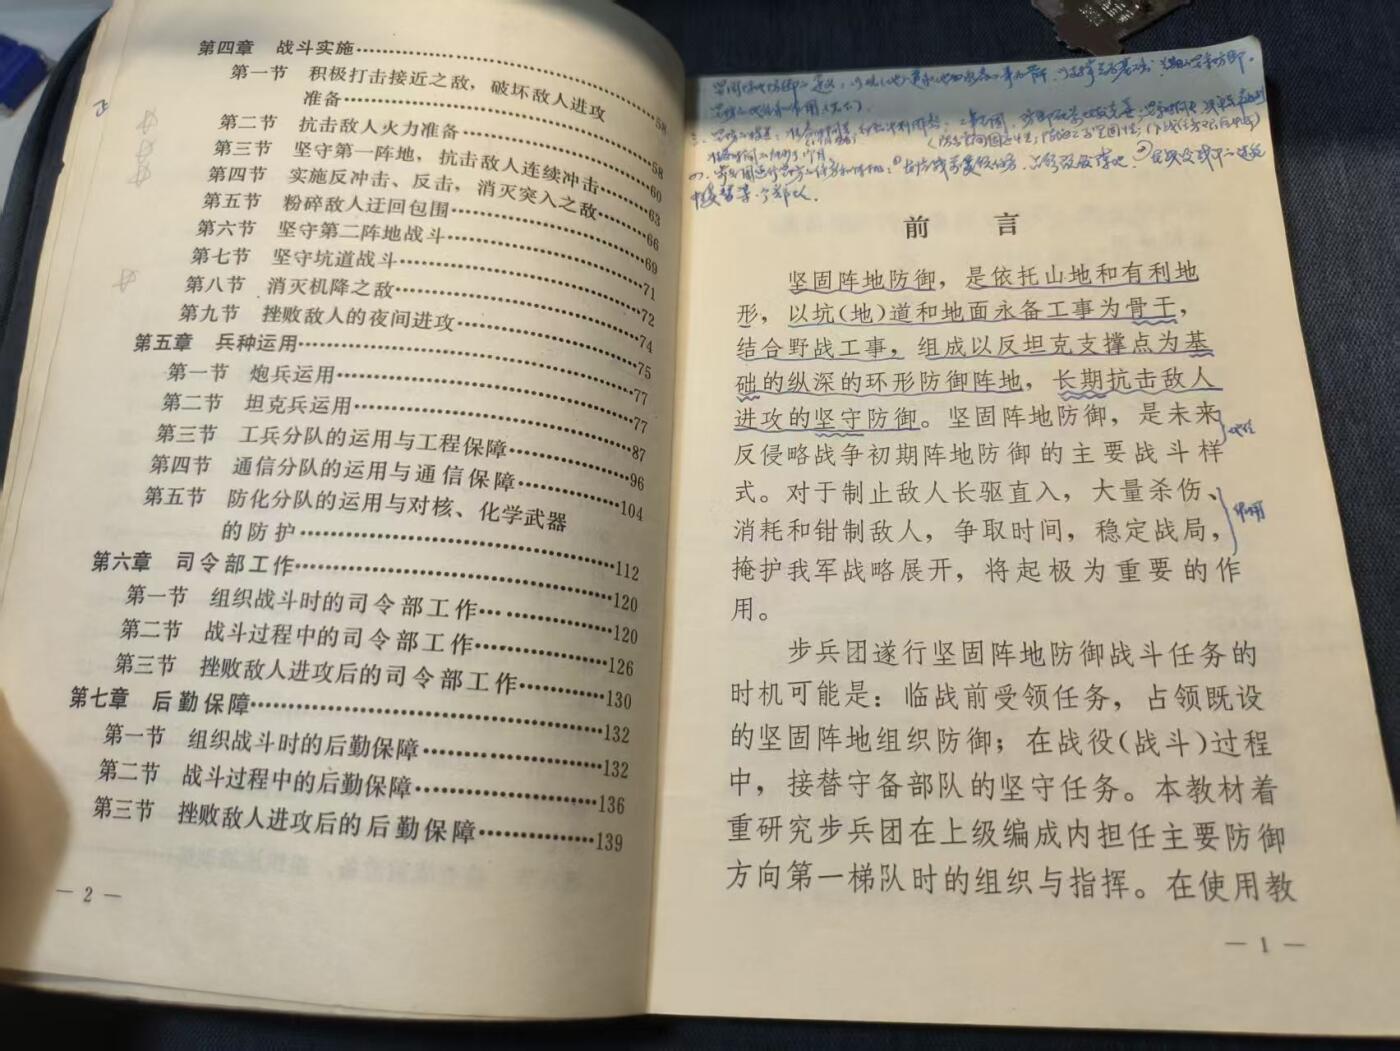 第四章 战斗实施……………………58
第一节 积极打击接近之敌，破坏敌人进攻
准备……………………58
第二节 抗击敌人火力准备……………………60
第三节 坚守第一阵地，抗击敌人连续冲击……63
第四节 实施反冲击、反击，消灭突入之敌……66
第五节 粉碎敌人迂回包围……………………69
第六节 坚守第二阵地战斗……………………71
第七节 坚守坑道战斗……………………72
第八节 消灭机降之敌……………………74
第九节 挫败敌人的夜间进攻……………………75
第五章 兵种运用……………………77
第一节 炮兵运用……………………77
第二节 坦克兵运用……………………87
第三节 工兵分队的运用与工程保障……………96
第四节 通信分队的运用与通信保障……………104
第五节 防化分队的运用与对核、化学武器
的防护……………………112
第六章 司令部工作……………………120
第一节 组织战斗时的司令部工作……………120
第二节 战斗过程中的司令部工作……………126
第三节 挫败敌人进攻后的司令部工作…………130
第七章 后勤保障……………………132
第一节 组织战斗时的后勤保障……………132
第二节 战斗过程中的后勤保障……………136
第三节 挫败敌人进攻后的后勤保障…………139
— 2 —
前 言
坚固阵地防御，是依托山地和有利地
形，以坑(地)道和地面永备工事为骨干，
结合野战工事，组成以反坦克支撑点为基
础的纵深的环形防御阵地，长期抗击敌人
进攻的坚守防御。坚固阵地防御，是未来
反侵略战争初期阵地防御的主要战斗样
式。对于制止敌人长驱直入，大量杀伤、
消耗和钳制敌人，争取时间，稳定战局，
掩护我军战略展开，将起极为重要的作
用。
步兵团遂行坚固阵地防御战斗任务的
时机可能是：临战前受领任务，占领既设
的坚固阵地组织防御；在战役(战斗)过程
中，接替守备部队的坚守任务。本教材着
重研究步兵团在上级编成内担任主要防御
方向第一梯队时的组织与指挥。在使用教
— 1 —